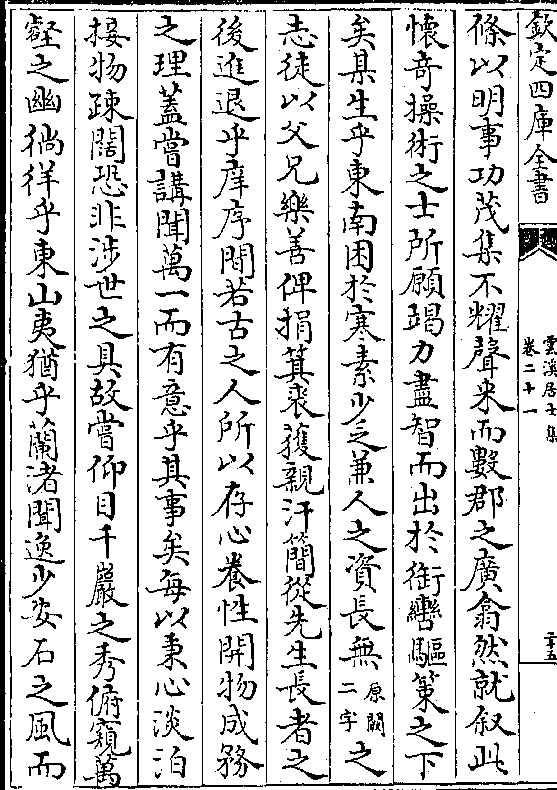 欽定四庫全書
雲溪居士集
卷二十一
二十五
條以明事功茂集不耀聲采而數郡之廣翕然就叙此
懷竒操術之士所願竭力盡智而出於銜轡驅策之下
矣某生乎東南困於寒素少乏兼人之資長無原闕二字之
志徒以父兄樂善俾捐箕裘獲親汗簡從先生長者之
後進退乎庠序間若古之人所以存心養性開物成務
之理蓋嘗講聞萬一而有意乎其事矣每以秉心淡泊
接物疎闊恐非涉世之具故嘗仰目千巖之秀俯窺萬
壑之幽徜徉乎東山夷猶乎蘭渚聞逸少安石之風而